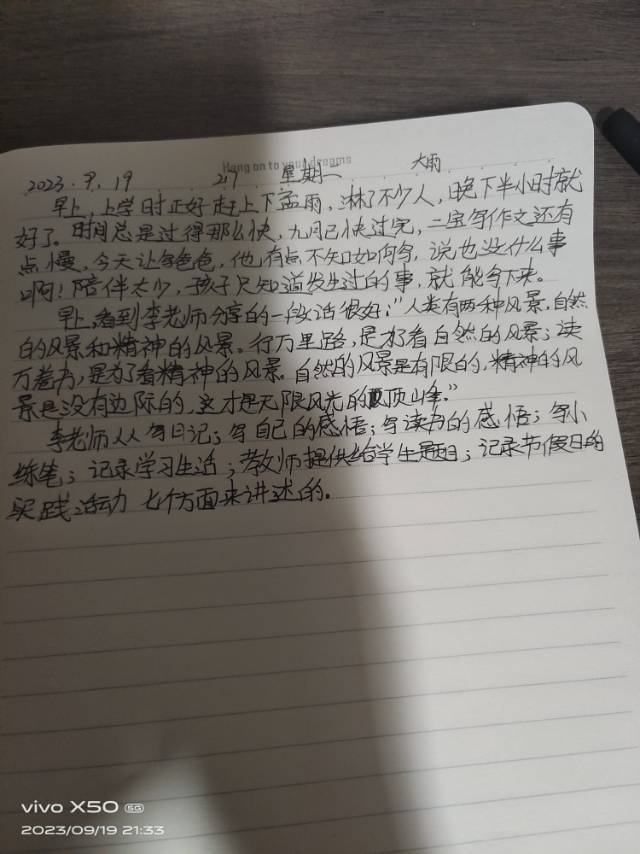 Hang on to your dreams
2023.9.19 217 星期二 大雨
早上,上学时正好赶上下孟雨,淋了不少人,晚下半小时就
好了。时间总是过得那么快,九月已快过完,二宝写作文还有
点慢,今天让写爸爸,他有点不知如何写,说也没什么事
啊!陪伴太少,孩子只知道发生过的事,就能写下来。
早上,看到李老师分享的一段话很好:"人类有两种风景,自然
的风景和精神的风景。行万里路,是为了看自然的风景;读
万卷书,是为了看精神的风景。自然的风景是有限的,精神的风
景是没有边际的,这才是无限风光的顶峰。"
李老师从写日记;写自己的感悟;写读书的感悟;写小
练笔;记录学习生活;教师提供给学生题目;记录节假日的
实践活动 七个方面来讲述的。
vivo X50 5G
2023/09/19 21:33